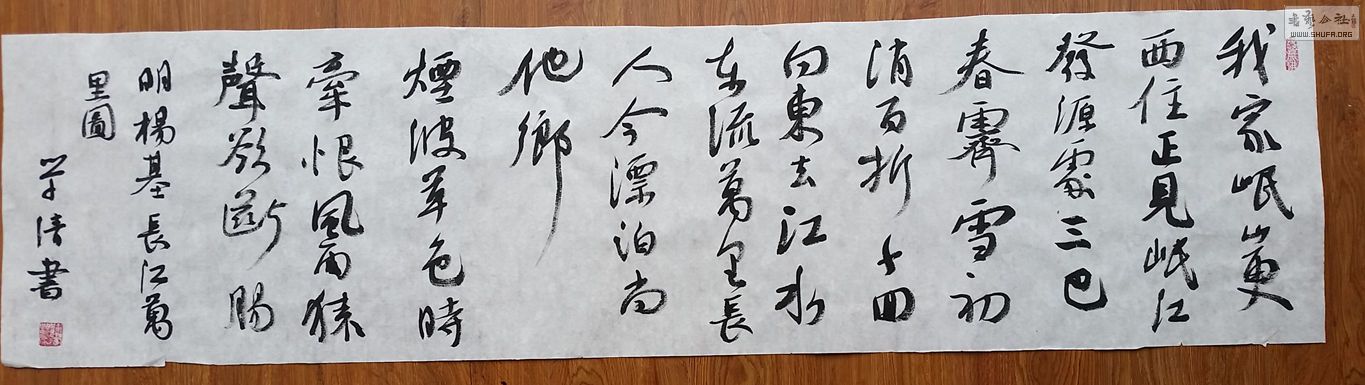 我家岷山更
西住正見岷江
發源處三巴
春霽雪初
消百折千回
向東去江水
东流萬里長
人今漂泊尚
他鄉
煙波草色時
牽恨風雨猿
聲欲斷腸
明楊基長江萬
里圖
学清書
WWW.SHUFA.ORG